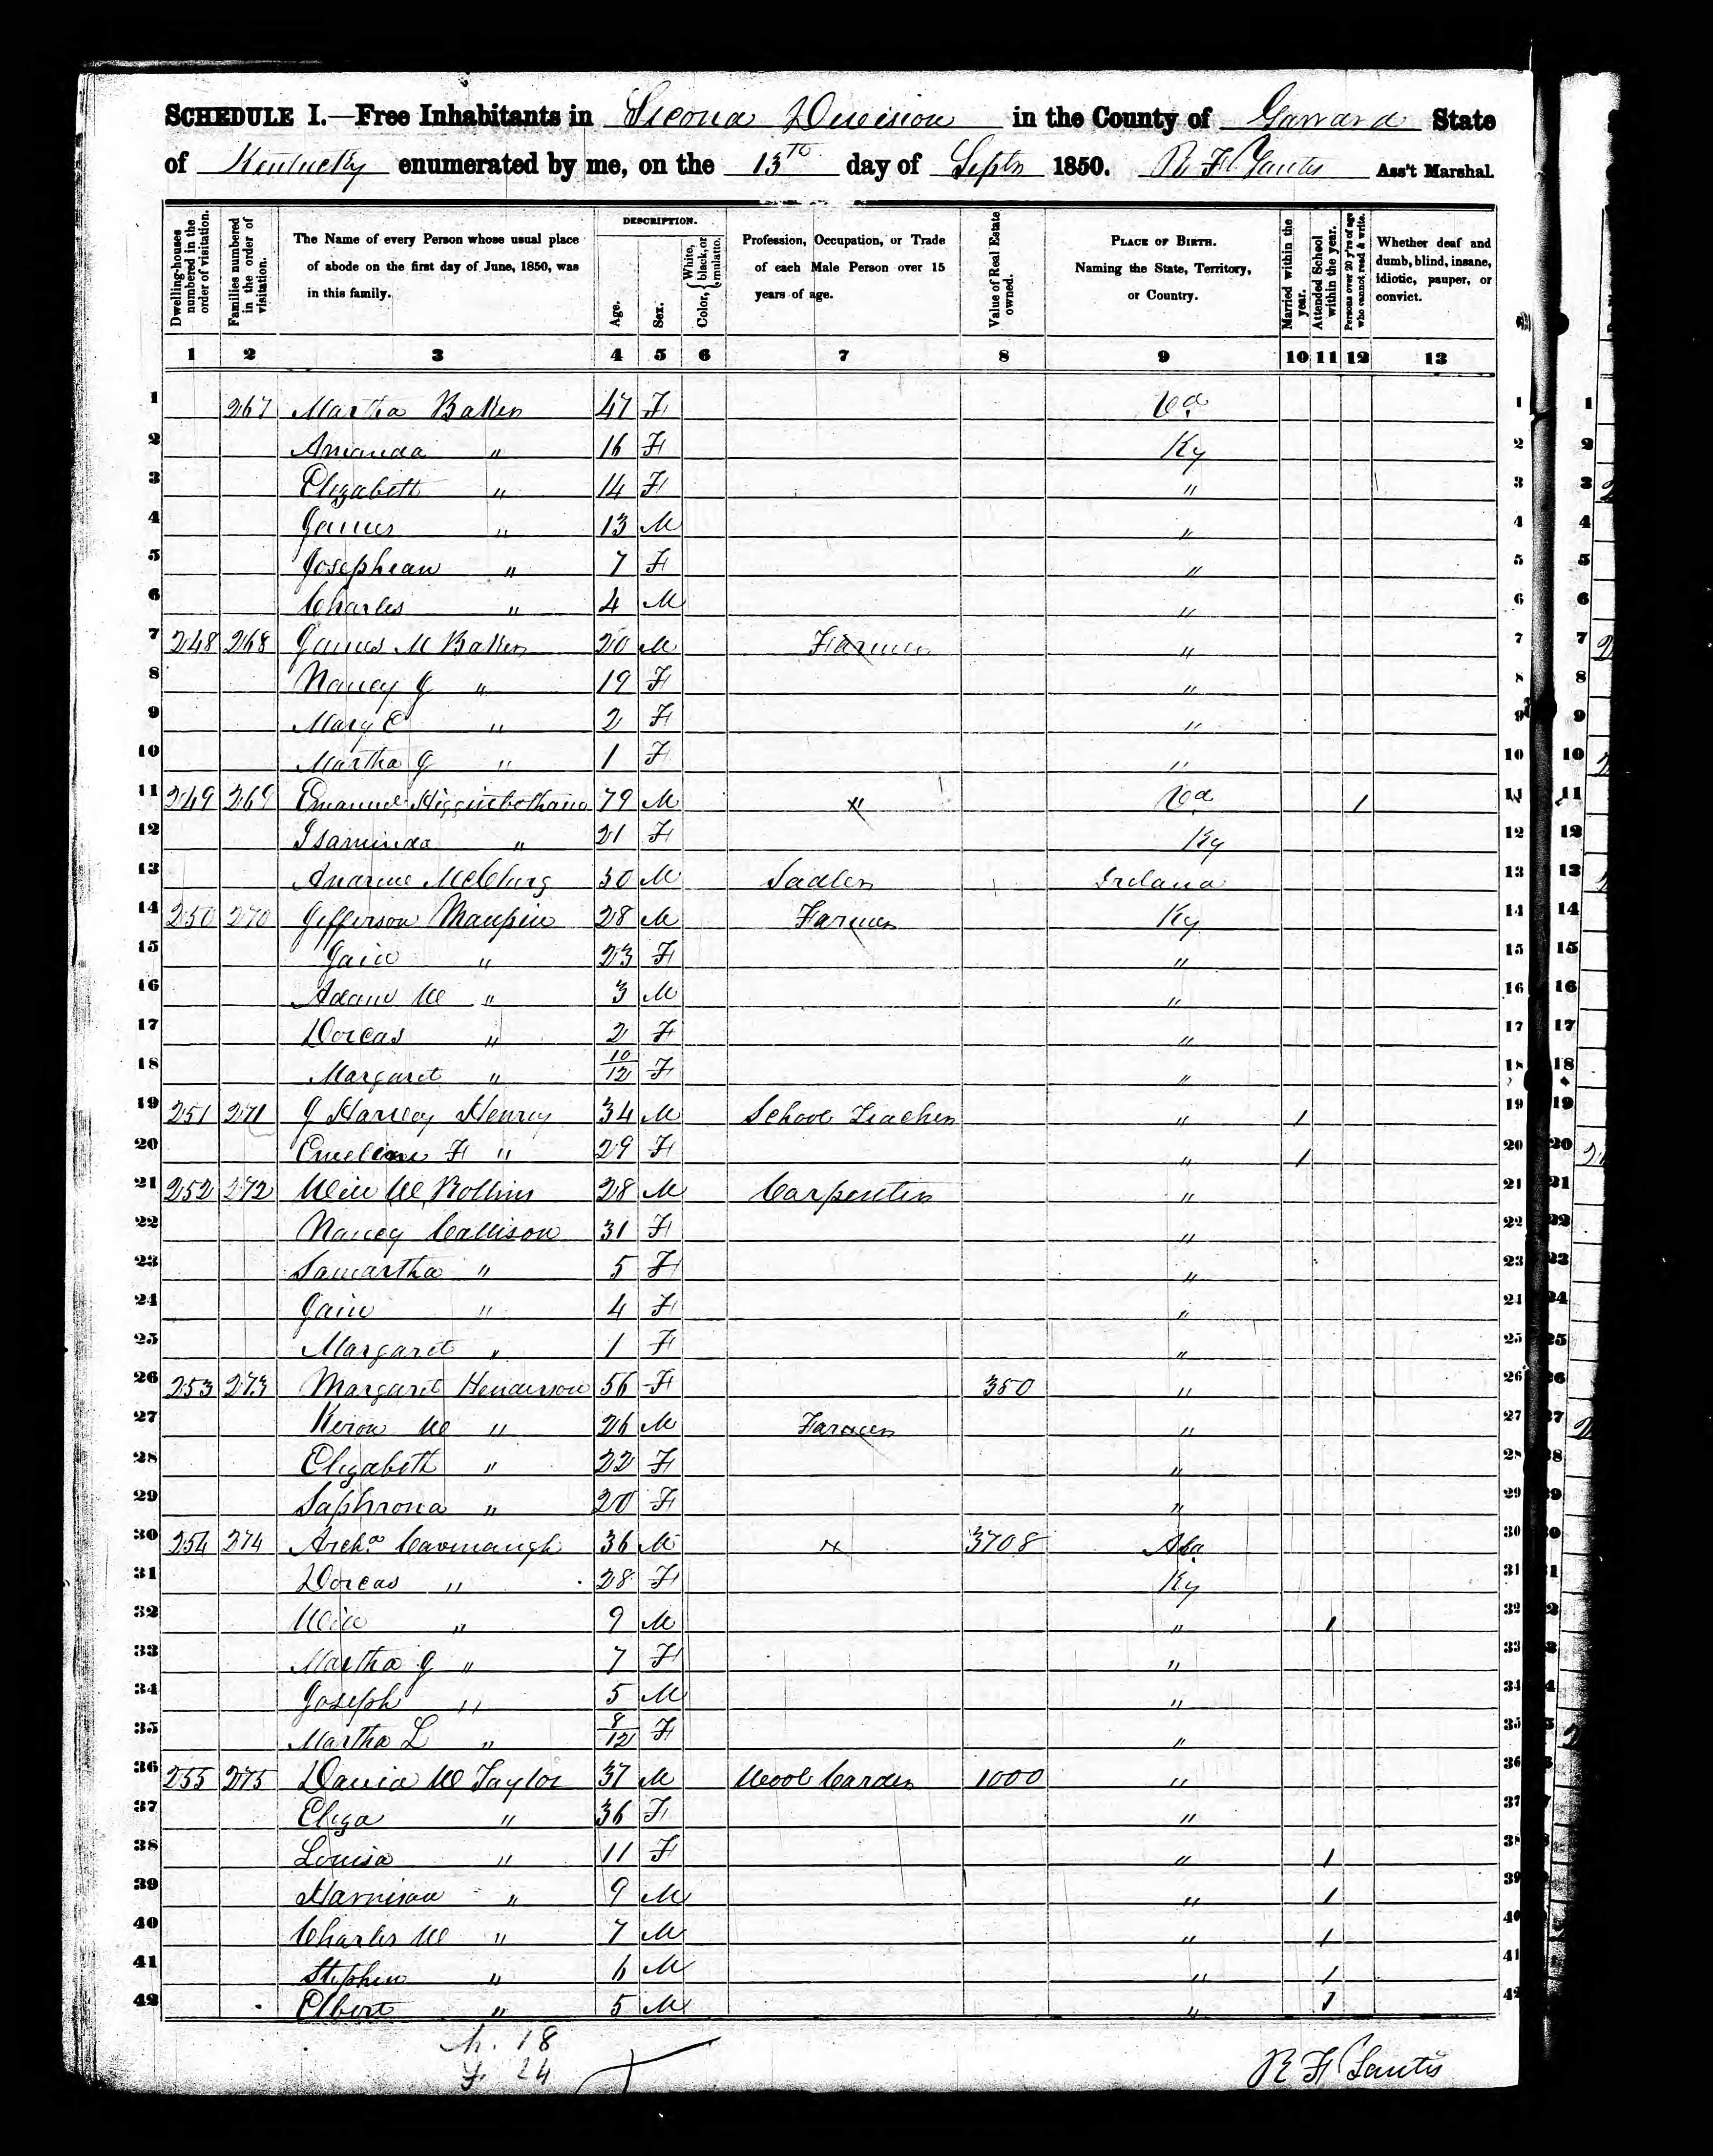 SCHEDULE I.—Free Inhabitants in Second Division in the County of Garrard State
of Kentucky enumerated by me, on the 13th day of Septr 1850. R F Ass't Marshal.
Dwelling-houses numbered in the order of visitation.
Families numbered in the order of visitation.
The Name of every Person whose usual place of abode on the first day of June, 1850, was in this family.
DESCRIPTION.
Age.
Sex.
Color, { White, black, or mulatto.
Profession, Occupation, or Trade of each Male Person over 15 years of age.
Value of Real Estate owned.
PLACE OF BIRTH. Naming the State, Territory, or Country.
Married within the year.
Attended School within the year.
Persons over 20 y'rs of age who cannot read & write.
Whether deaf and dumb, blind, insane, idiotic, pauper, or convict.
1 2 3 4 5 6 7 8 9 10 11 12 13
1 267 Martha Baker 47 F Va 1
2 Amanda " 16 F Ky 2
3 Elizabeth " 14 F " 3
4 James " 13 M " 4
5 Josephean " 7 F " 5
6 Charles " 4 M " 6
7 248 268 James M Baker 20 M Farmer " 7
8 Nancy J " 19 F " 8
9 Mary E " 2 F " 9
10 Martha J " 1 F " 10
11 249 269 Emanuel Higginbotham 79 M " Va 1 11
12 Isaminda " 21 F Ky 12
13 McClurg 30 M Sadler Ireland 13
14 250 270 Jefferson Maupin 28 M Farmer Ky 14
15 Jain " 23 F " 15
16 Adam W " 3 M " 16
17 Dorcas " 2 F " 17
18 Margaret " 10/12 F " 18
19 251 271 J Harvey Henry 34 M School Teacher " 1 19
20 Emeline F " 29 F " 1 20
21 252 272 Will W Rollins 28 M Carpenter " 21
22 Nancy Callison 31 F " 22
23 Samartha " 5 F " 23
24 Jain " 4 F " 24
25 Margaret " 1 F " 25
26 253 273 Margaret Henderson 56 F 350 " 26
27 W " 26 M Farmer " 27
28 Elizabeth " 22 F " 28
29 Saphrona " 20 F " 29
30 254 274 Archa Cavanaugh 36 M " 3708 Ala 30
31 Dorcas " 28 F Ky 31
32 Will " 9 M " 1 32
33 Martha J " 7 F " 33
34 Joseph " 5 M " 34
35 Martha L " 8/12 F " 35
36 255 275 David W Taylor 37 M Wool Carder 1000 " 36
37 Eliza " 36 F " 37
38 Louisa " 11 F " 1 38
39 Harrison " 9 M " 1 39
40 Charles W " 7 M " 1 40
41 Stephen " 6 M " 1 41
42 Elbert " 5 M " 1 42
M. 18
F. 24
R F